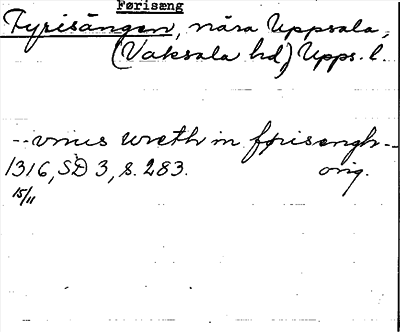 Førisæng
Fyrisängen, nära Uppsala,
(Vaksala hd) Upps. l.
-- vnius wreth in førisængh --
1316, SD 3, s. 283. orig.
15/11